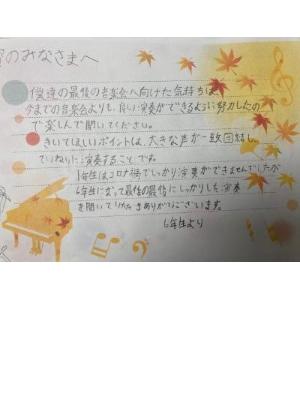 のみなさまへ
僕達の最後の音楽会へ向けた気持ちは、
今までの音楽会よりも、良い演奏ができるように努力したの
で楽しんで聞いてください。
きいてほしいポイントは、大きな声が一致団結し、
ていねいに演奏することです。
1年生はコロナ禍でしっかり演奏ができませんでしたが
6年生になって最後の最後にしっかりした演奏
を聞いて いただきありがとうございます。
6年生より